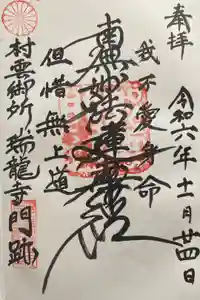 奉拝
令和六年十一月廿四日
我不愛身命
南無妙法蓮華経
但惜無上道
村雲御所瑞龍寺門跡